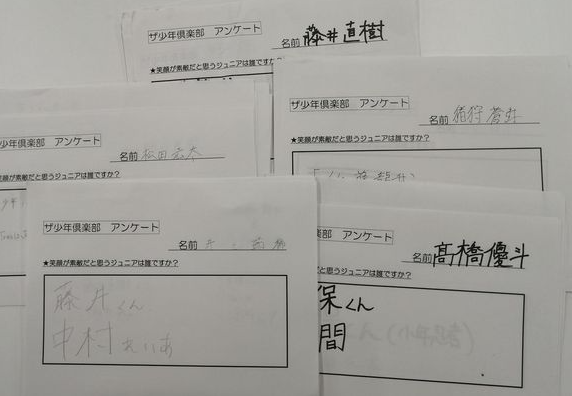 ザ少年倶楽部 アンケート
名前 藤井直樹
★笑顔が素敵だと思うジュニアは誰ですか
ザ少年倶楽部 アンケート
名前 猪狩蒼弥
★笑顔が素敵だと思うジュニアは誰ですか?
少年倶楽部 アンケート
名前
顔が素敵だと思うジュニアは誰ですか?
ザ少年倶楽部 アンケート
名前 井
★笑顔が素敵だと思うジュニアは誰ですか?
藤井くん
中村れいあ
部 アンケート
名前 髙橋優斗
と思うジュニアは誰ですか?
保くん
間